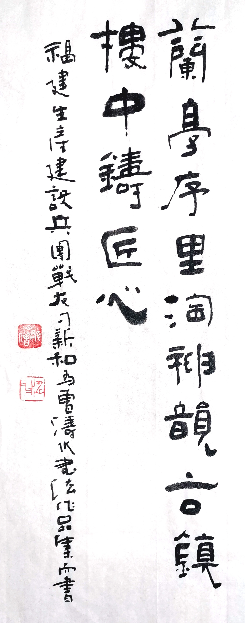 蘭亭序里淘神韻古鎮
樓中鑄匠心
福建生产建設兵團戰友習新和為曹濤水書法作品集而書